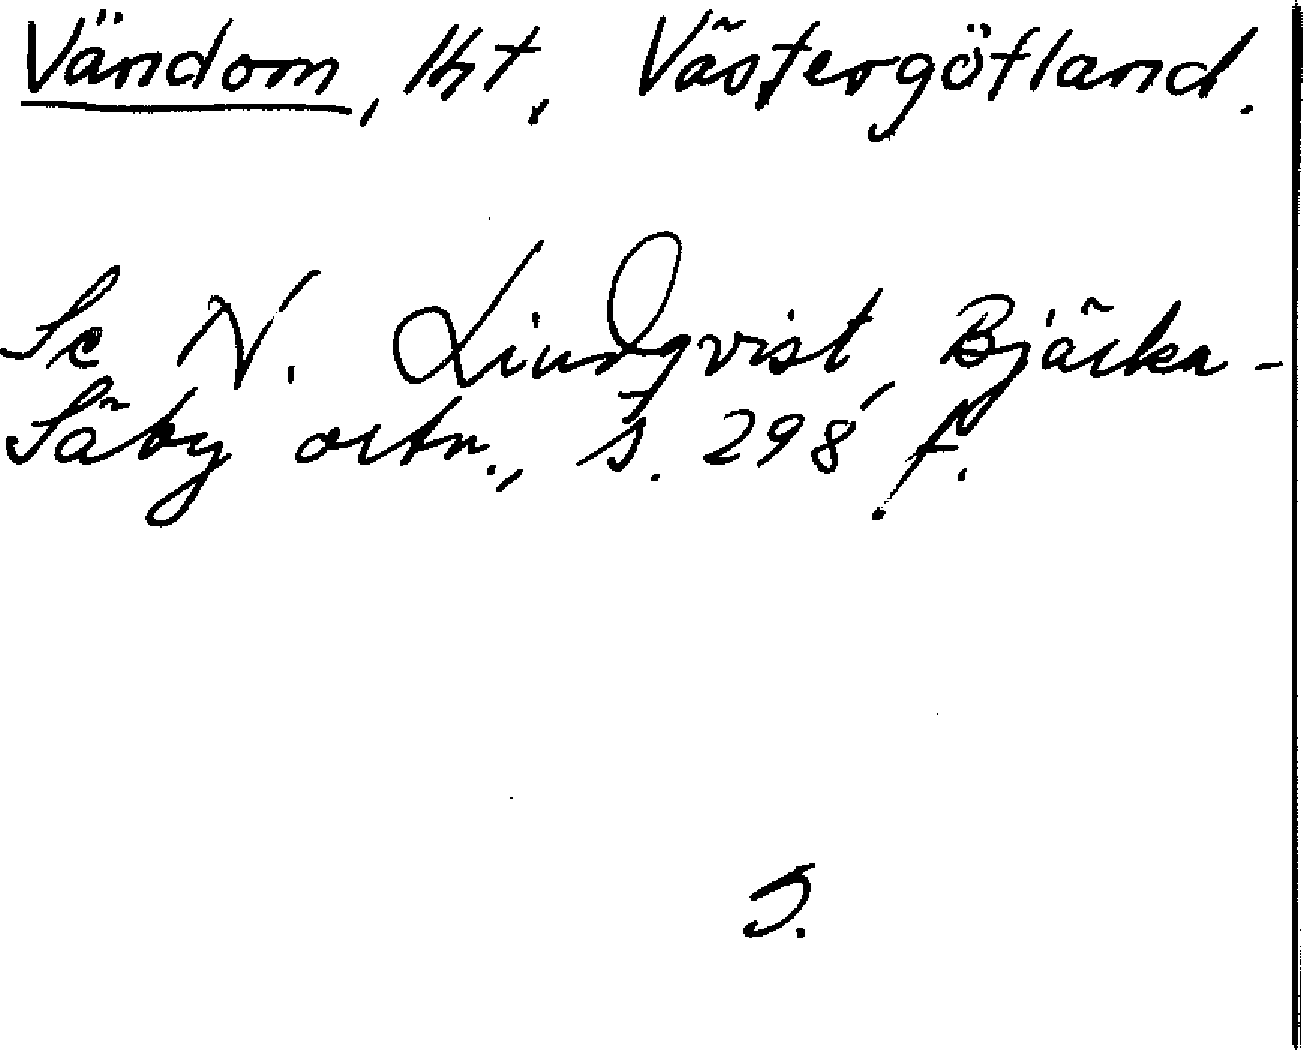 Vändom, Kt, Västergötland.
Se N. Lindqvist, Bjärka-
Säby ortn., s. 298 f.